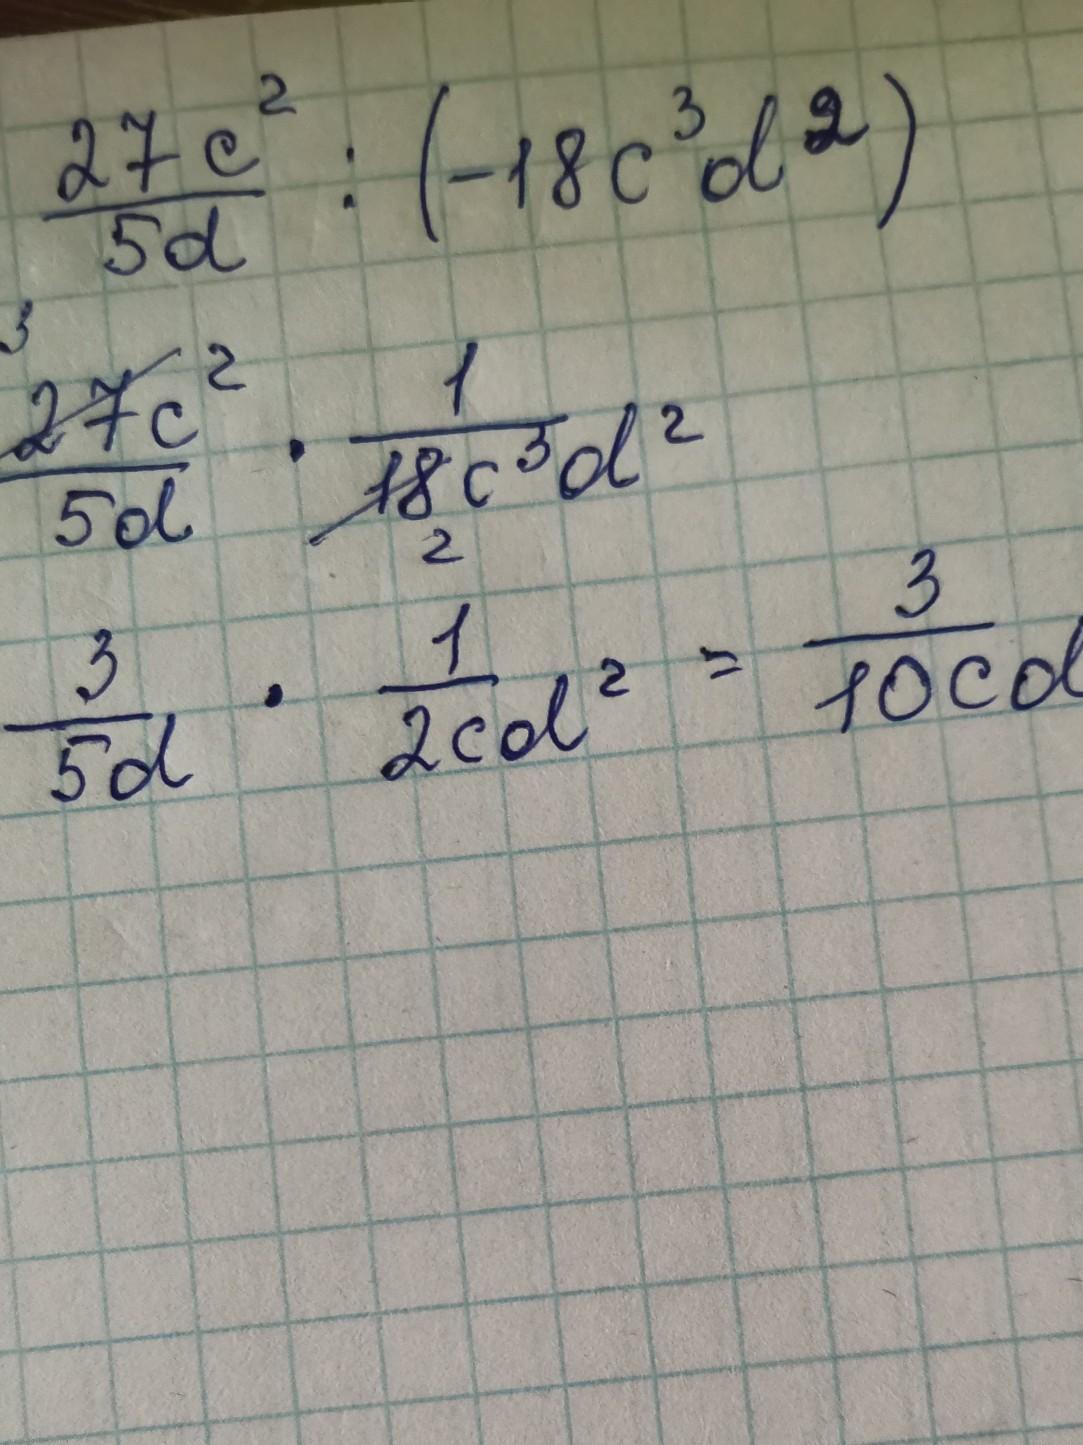 27c² / 5d : (-18c³d²)
3 27c² / 5d · 1 / 18c³d² 2
3 / 5d · 1 / 2cd² = 3 / 10cd